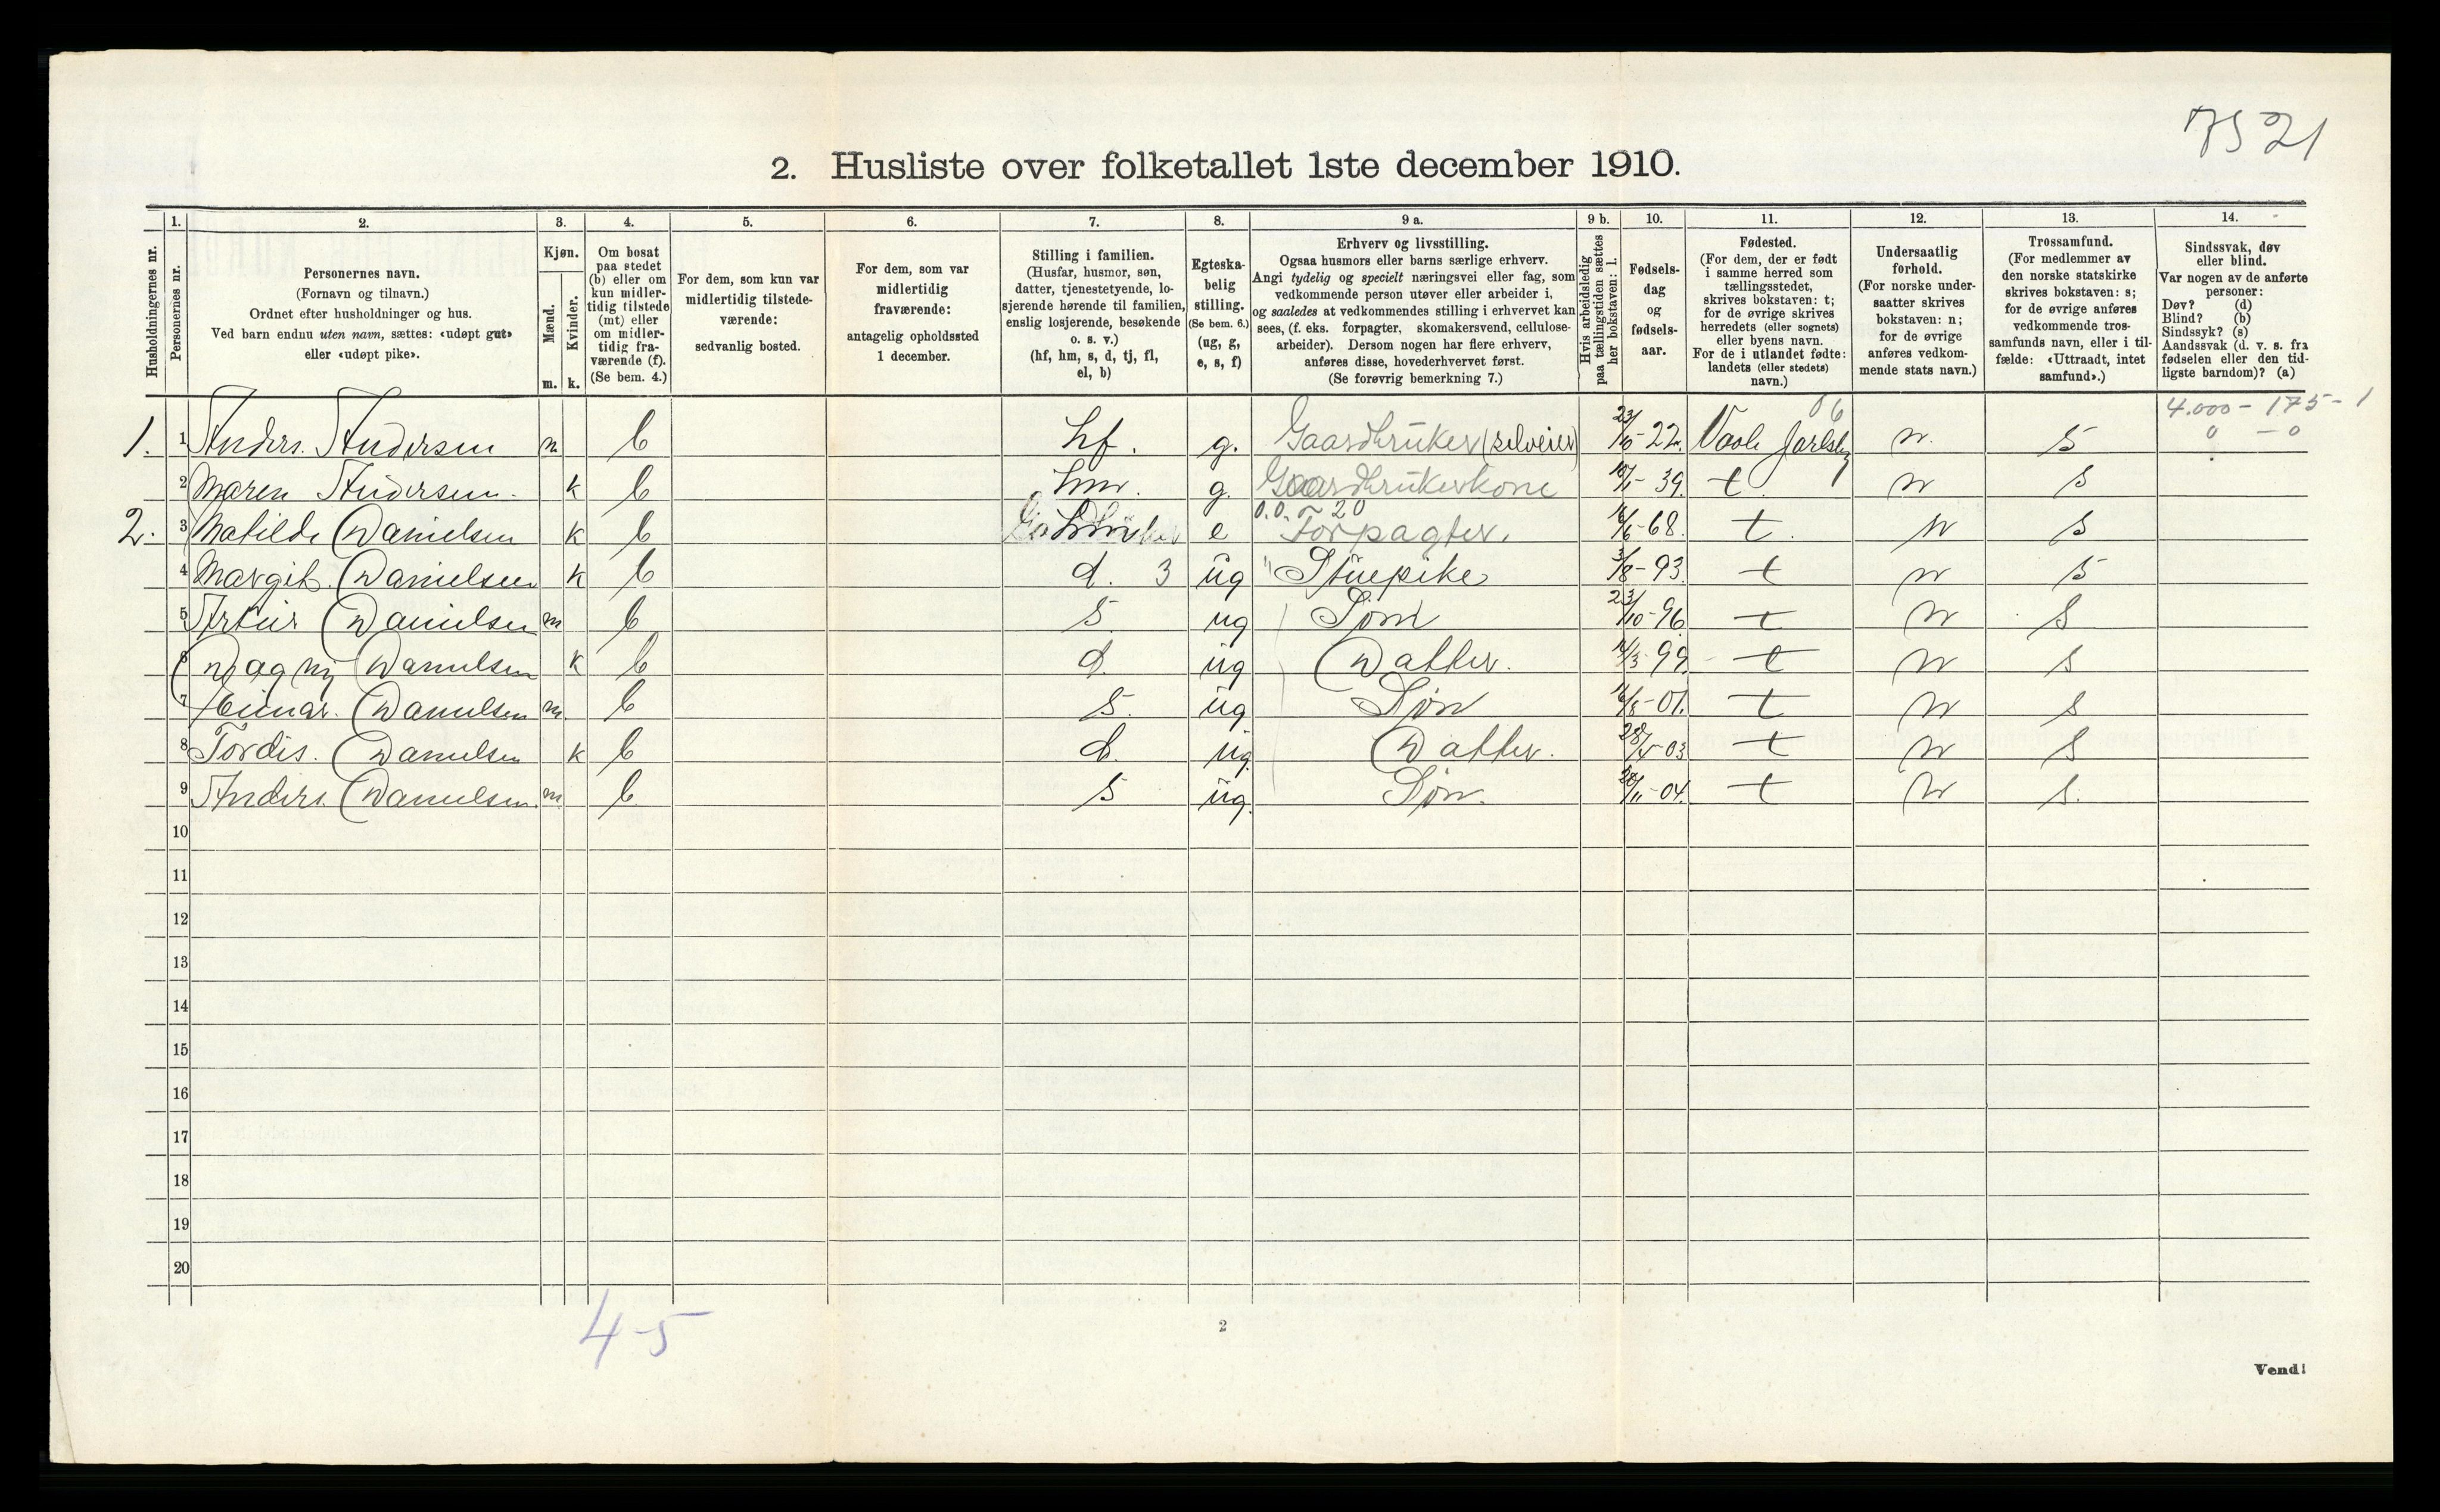 7521
2. Husliste over folketallet 1ste december 1910.
Husholdningernes nr.
1. Personernes nr.
2. Personernes navn. (Fornavn og tilnavn.) Ordnet efter husholdninger og hus. Ved barn endnu uten navn, sættes: «udøpt gut» eller «udøpt pike».
3. Kjøn. Mænd. m. Kvinder. k.
4. Om bosat paa stedet (b) eller om kun midlertidig tilstede (mt) eller om midlertidig fraværende (f). (Se bem. 4.)
5. For dem, som kun var midlertidig tilstedeværende: sedvanlig bosted.
6. For dem, som var midlertidig fraværende: antagelig opholdssted 1 december.
7. Stilling i familien. (Husfar, husmor, søn, datter, tjenestetyende, losjerende hørende til familien, enslig losjerende, besøkende o. s. v.) (hf, hm, s, d, tj, fl, el, b)
8. Egteskabelig stilling. (Se bem. 6.) (ug, g, e, s, f)
9 a. Erhverv og livsstilling. Ogsaa husmors eller barns særlige erhverv. Angi tydelig og specielt næringsvei eller fag, som vedkommende person utøver eller arbeider i, og saaledes at vedkommendes stilling i erhvervet kan sees, (f. eks. forpagter, skomakersvend, cellulosearbeider). Dersom nogen har flere erhverv, anføres disse, hovederhvervet først. (Se forøvrig bemerkning 7.)
9 b. Hvis arbeidsledig paa tællingstiden sættes her bokstaven: l.
10. Fødselsdag og fødselsaar.
11. Fødested. (For dem, der er født i samme herred som tællingsstedet, skrives bokstaven: t; for de øvrige skrives herredets (eller sognets) eller byens navn. For de i utlandet fødte: landets (eller stedets) navn.)
12. Undersaatlig forhold. (For norske undersaatter skrives bokstaven: n; for de øvrige anføres vedkommende stats navn.)
13. Trossamfund. (For medlemmer av den norske statskirke skrives bokstaven: s; for de øvrige anføres vedkommende trossamfunds navn, eller i tilfælde: «Uttraadt, intet samfund».)
14. Sindssvak, døv eller blind. Var nogen av de anførte personer: Døv? (d) Blind? (b) Sindssyk? (s) Aandssvak (d. v. s. fra fødselen eller den tidligste barndom)? (a)
06 4.000 - 175 - 1
0 - 0
1. 1 Anders. Andersen m b hf. g. Gaardbruker (selveier) 23/10-22. Vaale Jarlsbg n. s
2 Maren Andersen. k b hm. g. Gaardbrukerkone t n s
0.0. ~ 20
2. 3 Matilde Danielsen k b e Forpagter. t. n s
4 Margit. Danielsen k b d. 3 ug " Stuepike 3/8-93. t n s
5 Artur Danielsen m b s. ug Søn 23/10-96 t n s
6 Dagny Danielsen k b d. ug Datter. 14/3-99. t n s
7 Danielsen m. b s. ug Søn t n s
8 Tordis. Danielsen k b d. ug. Datter. t n s
9 Anders. Danielsen. m b s ug. Søn. t n s.
10
11
12
13
14
15
16
17
18
19
20
4-5
2
Vend!